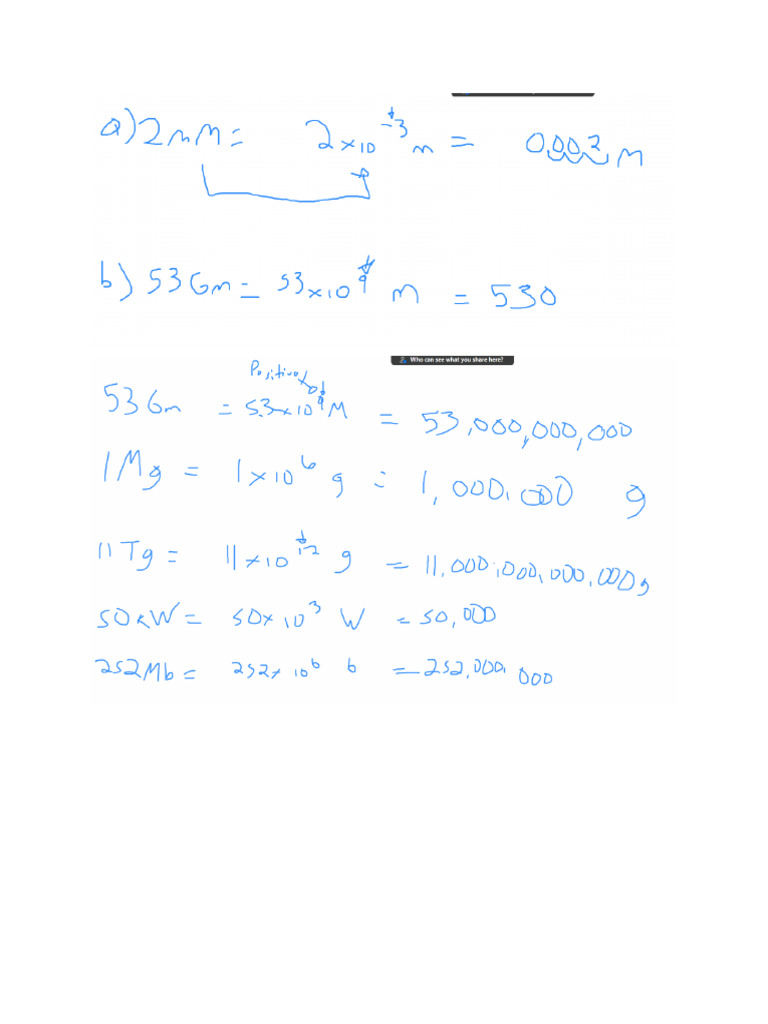 a) 2mM = 2 x 10 -3 m = 0.002 M
b) 53Gm = 53 x 10 9 M = 530
Who can see what you share here?
Positive
53Gm = 53 x 10 9 M = 53,000,000,000
1Mg = 1 x 10 6 g = 1,000,000 g
11Tg = 11 x 10 12 g = 11,000,000,000,000g
50kW = 50 x 10 3 W = 50,000
252Mb = 252 x 10 6 b = 252,000,000